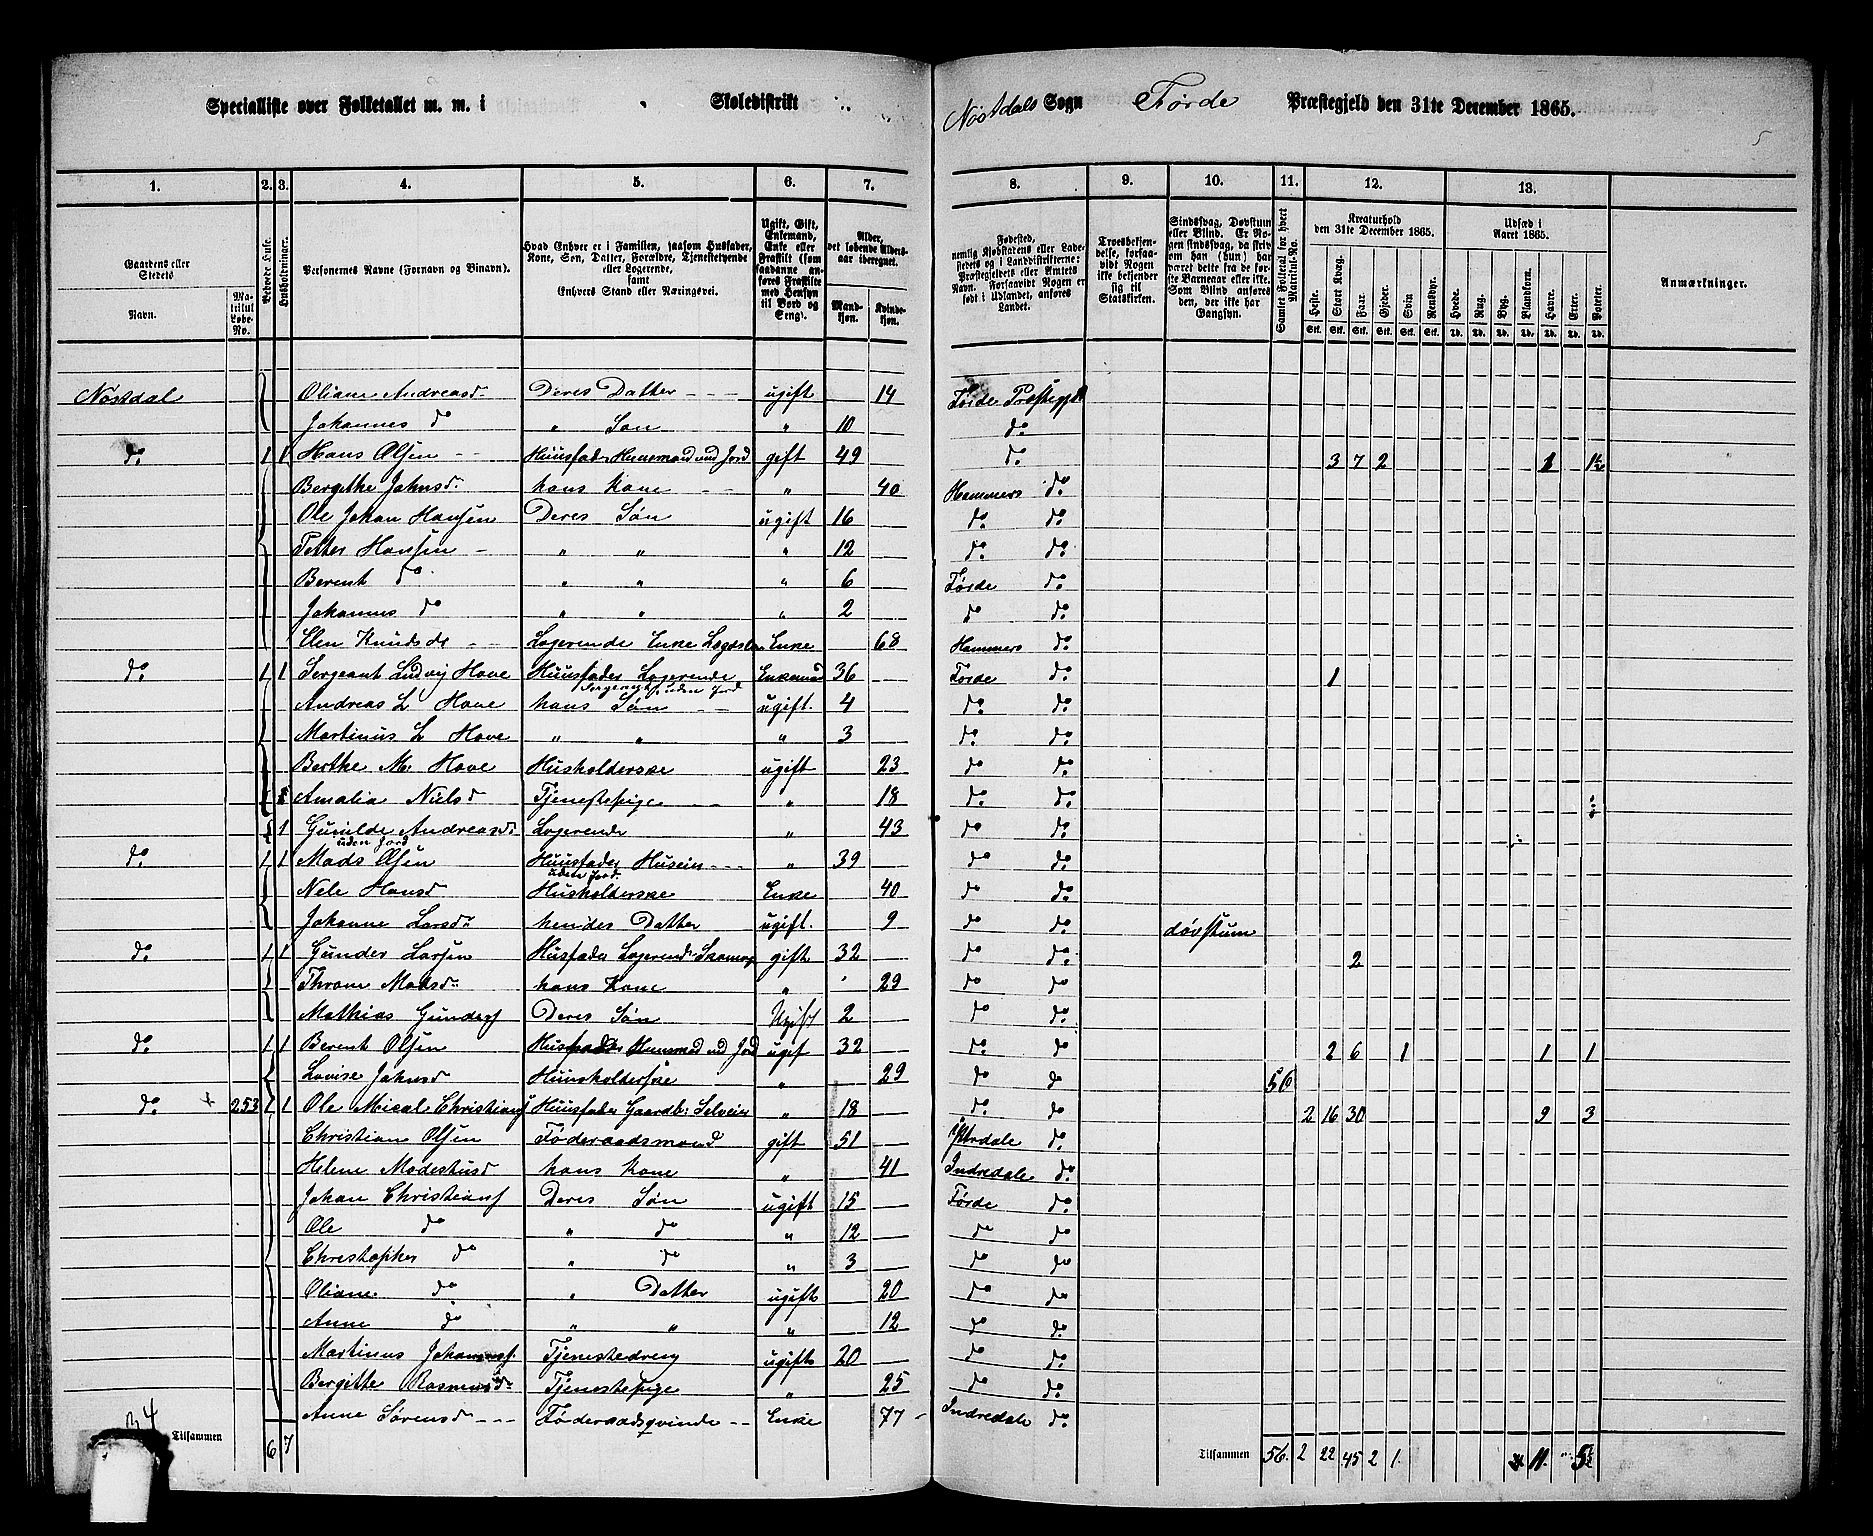 Specialliste over Folketallet m. m. i Skoledistrikt Nøstdals Sogn Førde Præstegjeld den 31te December 1865.
5
1. 2. 3. 4. 5. 6. 7. 8. 9. 10. 11. 12. 13.
Gaardens eller Stedets
Navn.
Matrikul Løbe-No.
Beboede Huse.
Husholdninger.
Personernes Navne (Fornavn og Binavn).
Hvad Enhver er i Familien, saasom Husfader, Kone, Søn, Datter, Forældre, Tjenestetyende eller Logerende, samt Enhvers Stand eller Næringsvei.
Ugift, Gift, Enkemand, Enke eller Fraskilt (som saadanne anføres Fraskilte med Hensyn til Bord og Seng).
Alder, det løbende Aldersaar iberegnet.
Mandkjøn. Kvindekjøn.
Fødested, nemlig Kjøbstadens eller Ladestedets eller i Landdistrikterne: Præstegjeldets eller Amtets Navn. Forsaavidt Nogen er født i Udlandet, anføres Landet.
Troesbekjendelse, forsaavidt Nogen ikke bekjender sig til Statskirken.
Sindssvag, Døvstum eller Blind. Er Nogen sindssvag, da skriv om han (hun) har været dette fra de første Barneaar eller ikke. Som Blind anføres den, der ikke har Gangsyn.
Samlet Folketal for hvert Matrikul-No.
Kreaturhold den 31te December 1865.
Heste. Stort Kvæg. Faar. Gjeder. Svin. Rensdyr.
Stk. Stk. Stk. Stk. Stk. Stk.
Udsæd i Aaret 1865.
Hvede. Rug. Byg. Blandkorn. Havre. Erter. Poteter.
Td. Td. Td. Td. Td. Td. Td.
Anmærkninger.
Nøstdal Oliane Andreasd. Deres Datter ugift 14 Førde Præstegjd
Johannes do " Søn " 10 do
do 1 1 Hans Olsen Huusfader Huusmand med Jord gift 49 do 3 7 2 1 1½
Bergithe Johnsd. hans Kone " 40 Hammers do
Ole Johan Hansen Deres Søn ugift 16 do do
Petter Hansen " " " 12 do do
Berent do " " " 6 Førde do
Johannes do " " " 2 do do
Elen Knudsd. Logerende Enke Enke 68 Hammers do
do 1 1 Sergeant Ludvig Hove Huusfader Logerende Enkemd 36 Førde do 1
uden Jord
Andreas L Hove hans Søn ugift. 4 do do
Martinus L Hove " " " 3 do do
Berthe M. Hove Husholderske ugift 23 do do
Amalia Nielsd Tjenestepige " 18 do do
1 Gunilde Andreasd. Logerende " 43 do do
uden Jord
do 1 1 Mads Olsen Huusfader Huseier " 39 do do
uden Jord.
Nele Hansd Husholderske Enke 40 do do
Johanne Larsdr hendes Datter ugift. 9 do do døvstum
do 1 1 Gunder Larsen Husfader Logerende Skomag gift 32 do do 2
Throne Madsdr hans Kone " 29 do do
Mathias Gunders Deres Søn Ugift 2 do do
do 1 1 Berent Olsen Husfader Huusmand md Jord ugif 32 do do 2 6 1 1 1
Lovise Johnsd Huusholderske " 29 do do 56
do 253 1 1 Ole Mical Christians Huusfader Gaardb: Selveier " 18 do do 2 16 30 9 3
Christian Olsen Føderaadsmand gift 51 Yttredale do
Helene Modestusd hans Kone " 41 Indredale do
Johan Christians Deres Søn ugift 15 Førde do
Ole do " do " 12 do do
Christopher do " do " 3 do do
Oliane do " Datter ugift 20 do do
Anne do " " " 12 do do
Martinus Johannes. Tjenestedreng ugift 20 do do
Bergitte Rasmusd. Tjenestepige " 25 do do
Anne Sørensd Føderaadsqvinde Enke 77 Indredale do
34
Tilsammen 6 7 Tilsammen 56. 2 22 45 2 1. 11. 5½